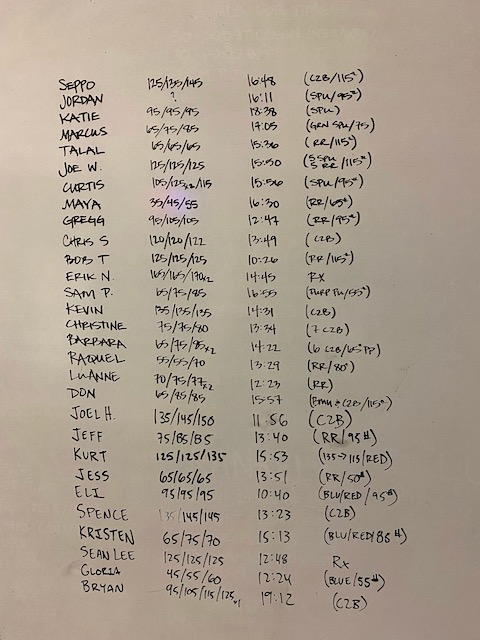 SEPPO 125/135/145 16:48 (C2B/115#)
JORDAN ? 16:11 (SPU/95#)
KATIE 95/95/95 18:38 (SPU)
MARCUS 65/75/85 17:05 (GRN SPU/75)
TALAL 65/65/65 15:36 (RR/115#)
JOE W. 125/125/125 15:50 (5 SPU 5 RR/115#)
CURTIS 105/125x2/115 15:56 (SPU/95#)
MAYA 35/45/55 16:30 (RR/65#)
GREGG 95/105/105 12:47 (RR/95#)
CHRIS S 120/120/122 13:49 (C2B)
BOB T 125/125/125 10:26 (RR/115#)
ERIK N. 165/165/170x2 14:45 RX
SAM P. 65/75/85 16:55 (PURP PU/55#)
KEVIN 135/135/135 14:31 (C2B)
CHRISTINE 75/75/80 13:34 (7 C2B)
BARBARA 65/75/85x2 14:22 (6 C2B/65 PP)
RAQUEL 55/55/70 13:29 (RR/80#)
LUANNE 70/75/77x2 12:23 (RR)
DON 65/75/85 15:57 C2B/115#)
JOEL H. 135/145/150 11:56 (C2B)
JEFF 75/85/85 13:40 (RR/95#)
KURT 125/125/135 15:53 (135→115/RED)
JESS 65/65/65 13:51 (RR/50#)
ELI 95/95/95 10:40 (BLU/RED/95#)
SPENCE 135/145/145 13:23 (C2B)
KRISTEN 65/75/70 15:13 (BLU/RED/85#)
SEAN LEE 125/125/125 12:48 Rx
GLORIA 45/55/60 12:24 (BLUE/55#)
BRYAN 95/105/115/125x1 19:12 (C2B)